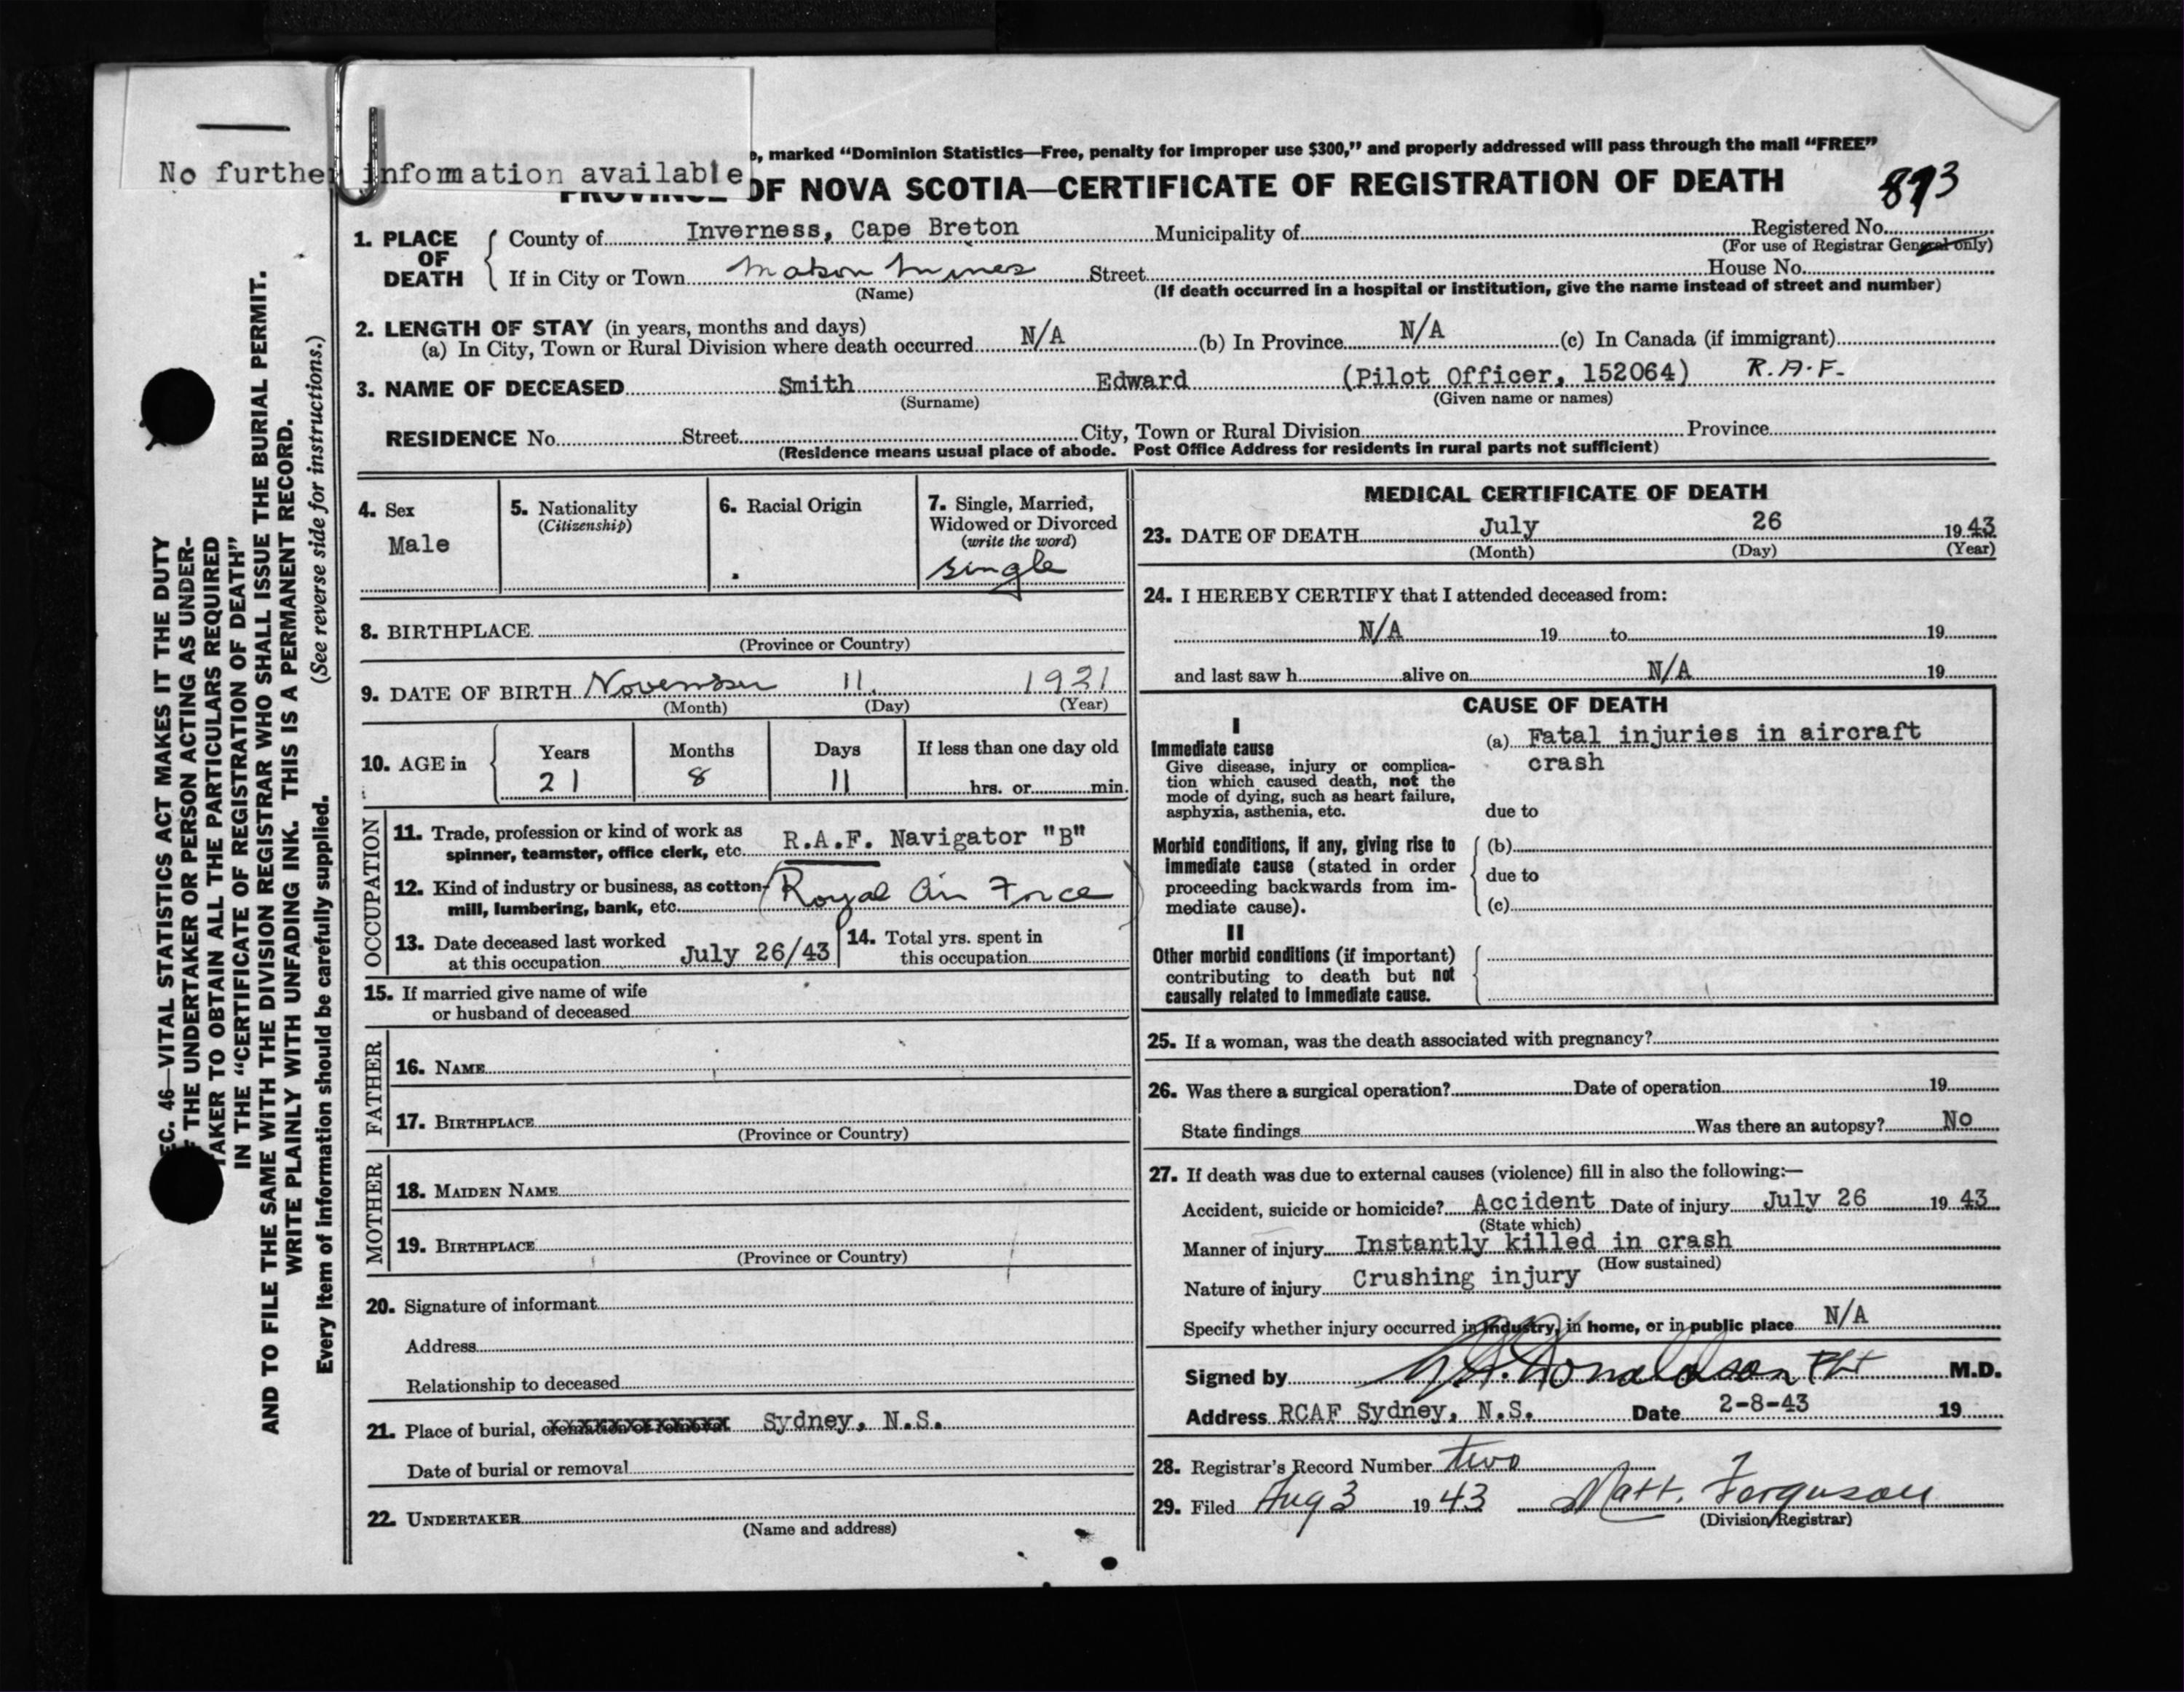 No further information available
e, marked “Dominion Statistics—Free, penalty for improper use $300,” and properly addressed will pass through the mail “FREE”
PROVINCE OF NOVA SCOTIA—CERTIFICATE OF REGISTRATION OF DEATH
873
1. PLACE OF DEATH
County of Inverness, Cape Breton Municipality of Registered No.
(For use of Registrar General only)
If in City or Town Mabou Mines Street House No.
(Name) (If death occurred in a hospital or institution, give the name instead of street and number)
2. LENGTH OF STAY (in years, months and days)
(a) In City, Town or Rural Division where death occurred N/A (b) In Province N/A (c) In Canada (if immigrant)
3. NAME OF DECEASED Smith Edward (Pilot Officer, 152064) R.A.F.
(Surname) (Given name or names)
RESIDENCE No. Street City, Town or Rural Division Province
(Residence means usual place of abode. Post Office Address for residents in rural parts not sufficient)
4. Sex
Male
5. Nationality
(Citizenship)
6. Racial Origin
7. Single, Married,
Widowed or Divorced
(write the word)
single
8. BIRTHPLACE
(Province or Country)
9. DATE OF BIRTH November 11, 1921
(Month) (Day) (Year)
10. AGE in
Years Months Days If less than one day old
21 8 11 hrs. or min.
OCCUPATION
11. Trade, profession or kind of work as
spinner, teamster, office clerk, etc. R.A.F. Navigator "B"
12. Kind of industry or business, as cotton-
mill, lumbering, bank, etc. (Royal Air Force)
13. Date deceased last worked
at this occupation July 26/43
14. Total yrs. spent in
this occupation
15. If married give name of wife
or husband of deceased
FATHER
16. NAME
17. BIRTHPLACE
(Province or Country)
MOTHER
18. MAIDEN NAME
19. BIRTHPLACE
(Province or Country)
20. Signature of informant
Address
Relationship to deceased
21. Place of burial, cremation or removal Sydney, N.S.
Date of burial or removal
22. UNDERTAKER
(Name and address)
MEDICAL CERTIFICATE OF DEATH
23. DATE OF DEATH July 26 1943
(Month) (Day) (Year)
24. I HEREBY CERTIFY that I attended deceased from:
N/A 19 to 19
and last saw h alive on N/A 19
CAUSE OF DEATH
I
Immediate cause
Give disease, injury or complica-
tion which caused death, not the
mode of dying, such as heart failure,
asphyxia, asthenia, etc.
(a) Fatal injuries in aircraft
crash
due to
Morbid conditions, if any, giving rise to
immediate cause (stated in order
proceeding backwards from im-
mediate cause).
(b)
due to
(c)
II
Other morbid conditions (if important)
contributing to death but not
causally related to immediate cause.
25. If a woman, was the death associated with pregnancy?
26. Was there a surgical operation? Date of operation 19
State findings Was there an autopsy? No
27. If death was due to external causes (violence) fill in also the following:—
Accident, suicide or homicide? Accident Date of injury July 26 1943
(State which)
Manner of injury Instantly killed in crash
(How sustained)
Nature of injury Crushing injury
Specify whether injury occurred in industry, in home, or in public place N/A
Signed by Donaldson F/Lt M.D.
Address RCAF Sydney, N.S. Date 2-8-43 19
28. Registrar's Record Number two
29. Filed Aug 3 1943 Matt. Ferguson
(Division Registrar)
EC. 46—VITAL STATISTICS ACT MAKES IT THE DUTY
THE UNDERTAKER OR PERSON ACTING AS UNDER-
TAKER TO OBTAIN ALL THE PARTICULARS REQUIRED
IN THE “CERTIFICATE OF REGISTRATION OF DEATH”
AND TO FILE THE SAME WITH THE DIVISION REGISTRAR WHO SHALL ISSUE THE BURIAL PERMIT.
WRITE PLAINLY WITH UNFADING INK. THIS IS A PERMANENT RECORD.
Every item of information should be carefully supplied. (See reverse side for instructions.)